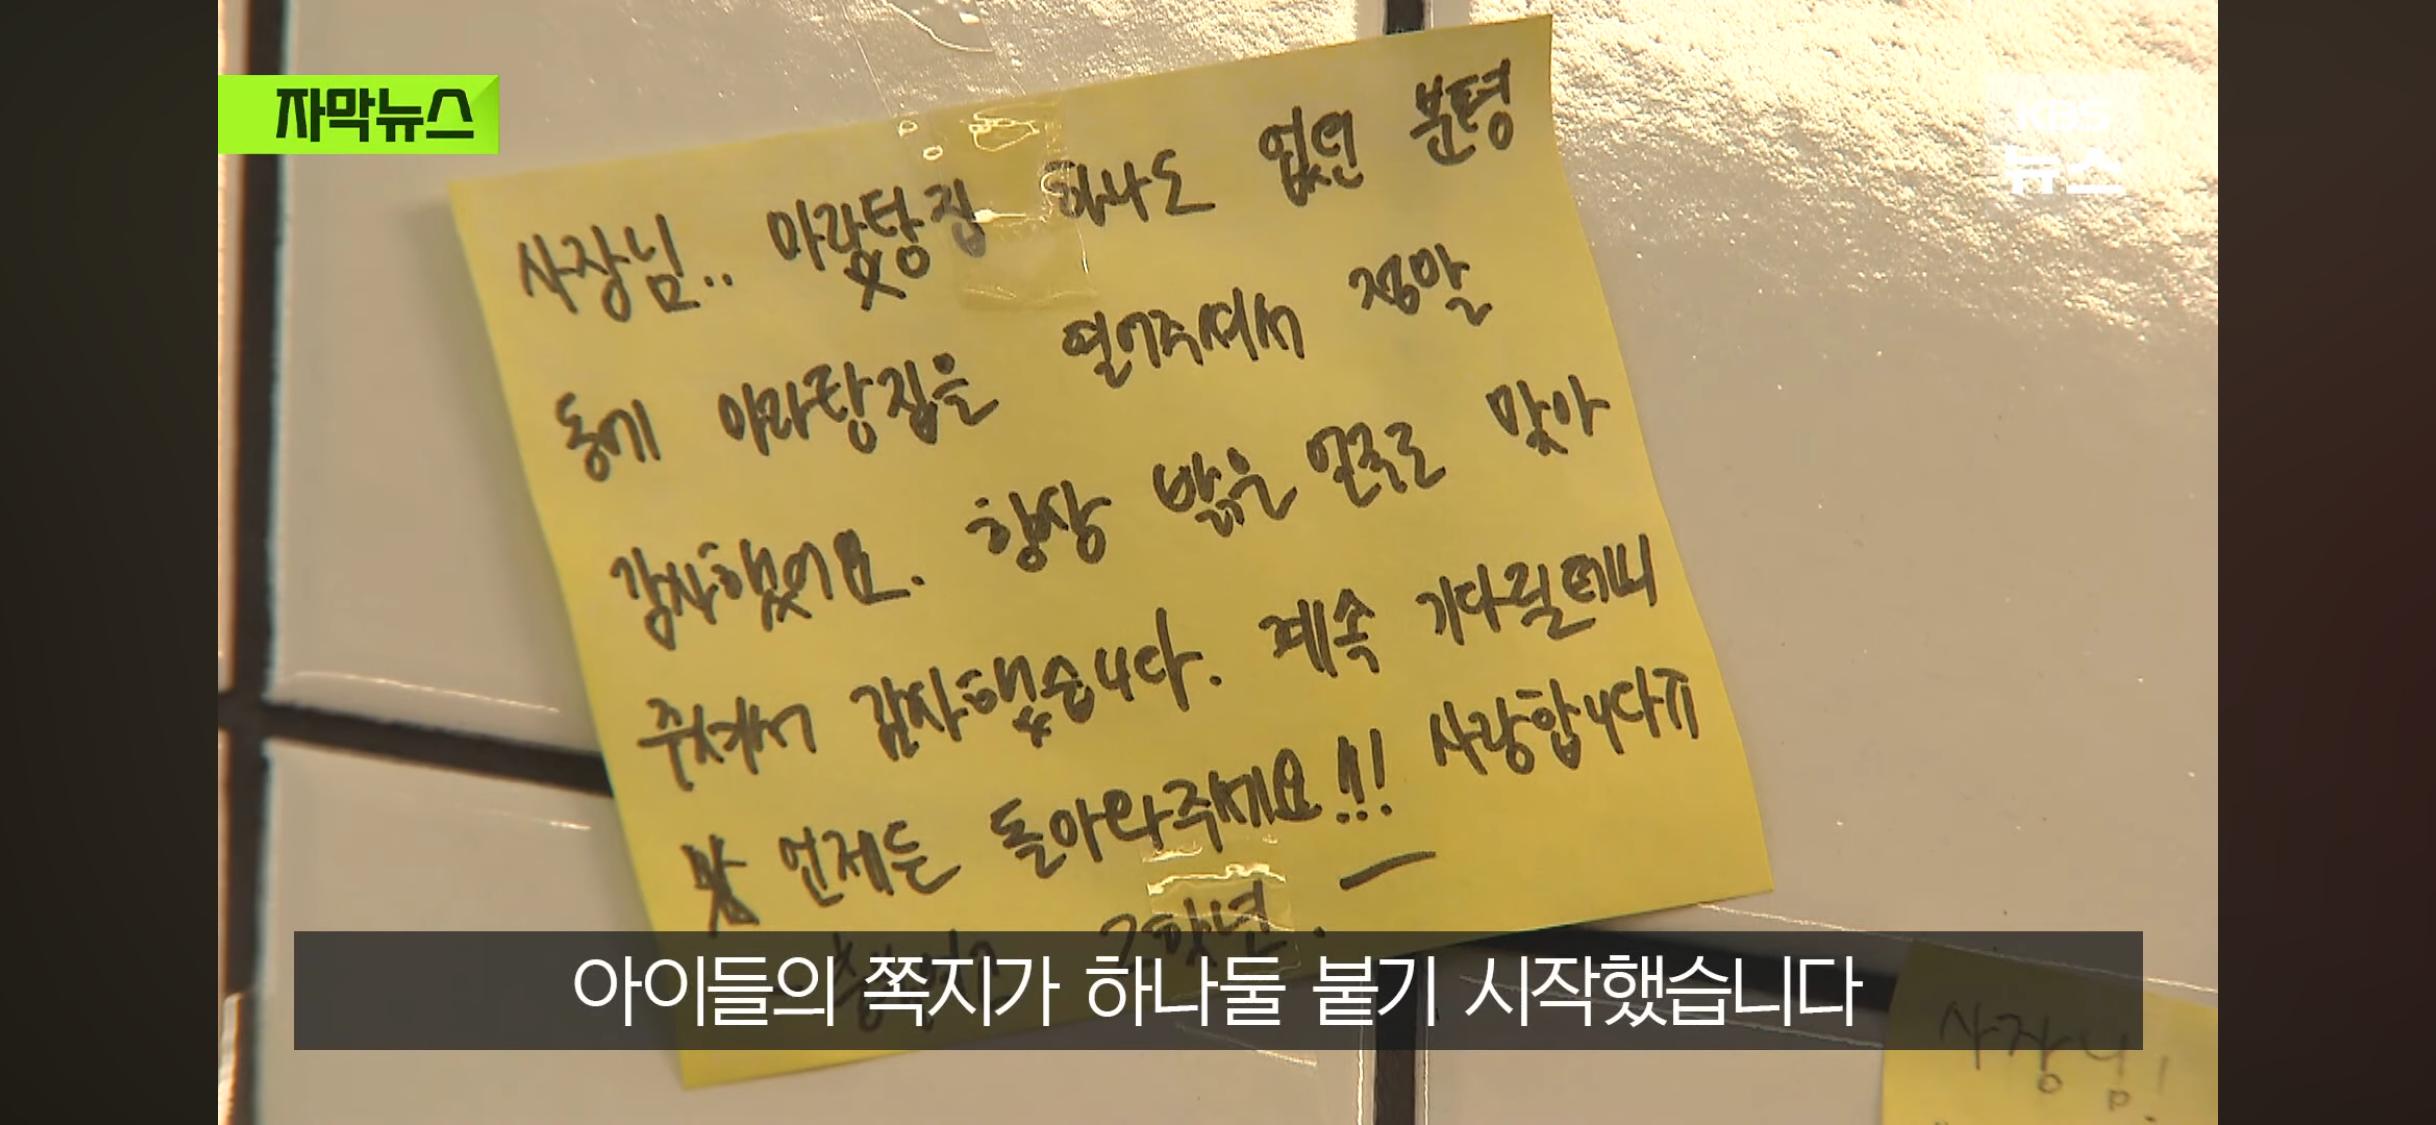 자막뉴스
KBS
뉴스
사장님.. 마랐탕집 하나도 없던 분평
동에 마라탕집을 열어주셔서 정말
감사했어요. 항상 밝은 얼굴로 맞아
주셔서 감사했습니다. 계속 기다릴테니
언제든 돌아와주세요!!! 사랑합니다ㅠ
2학년.
아이들의 쪽지가 하나둘 붙기 시작했습니다
사장님!